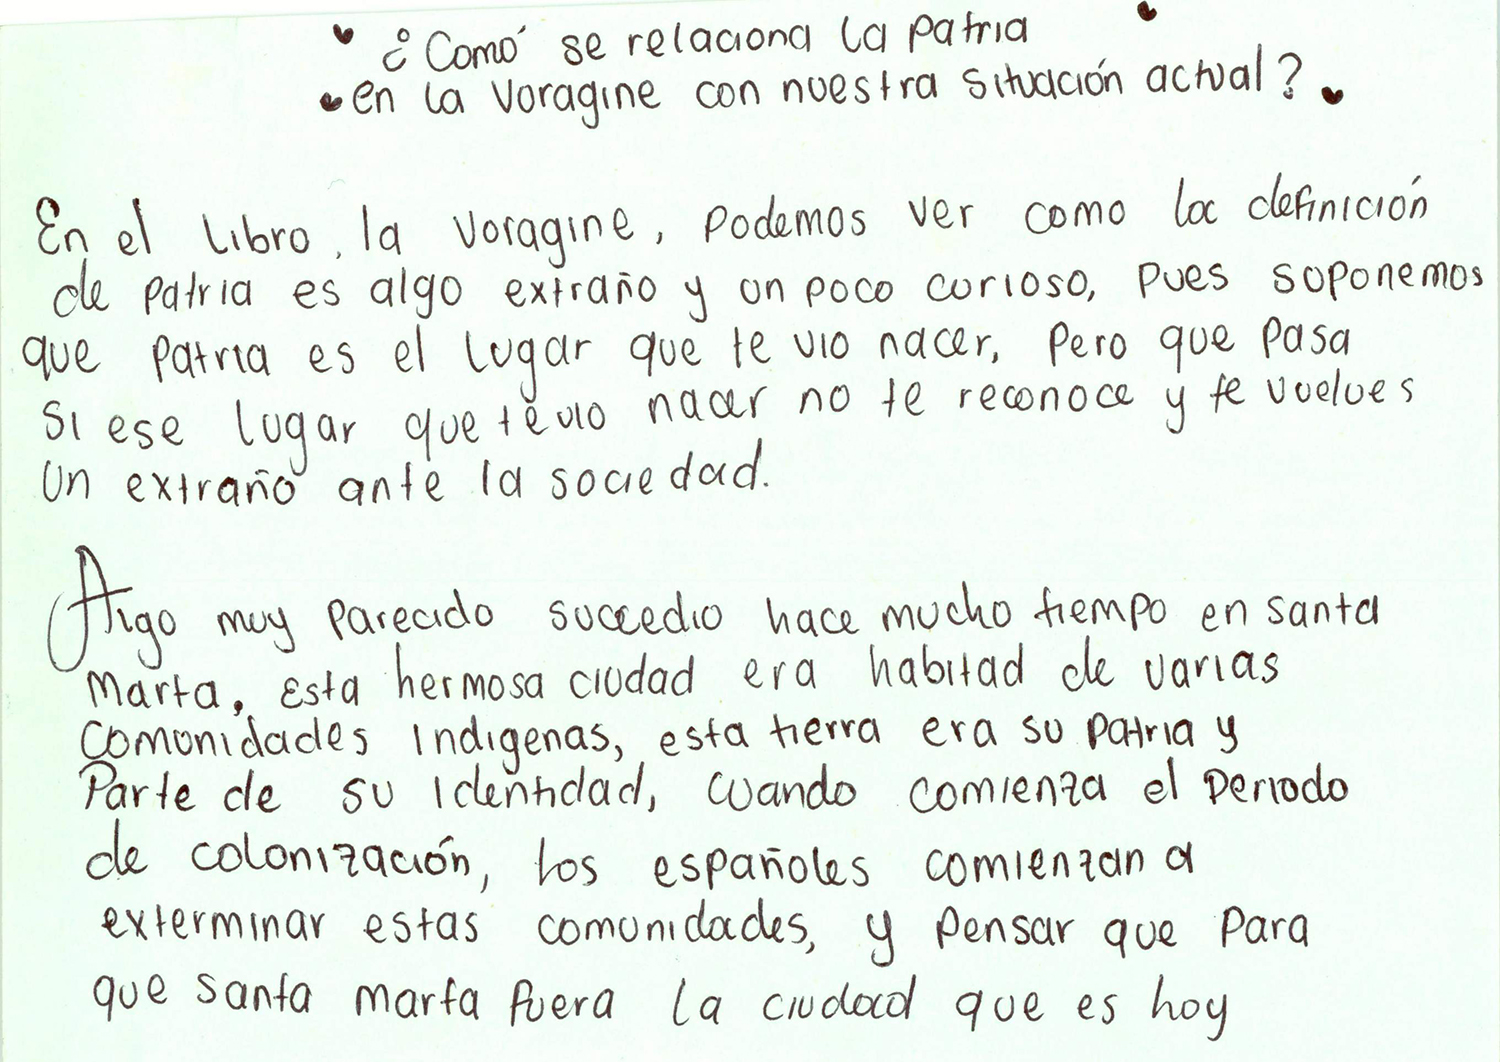 ¿Comó se relaciona la patria
en la Voragine con nuestra situación actual?
En el libro, la Voragine, podemos ver como la definición
de patria es algo extraño y un poco curioso, pues suponemos
que patria es el lugar que te vio nacer, pero que pasa
si ese lugar que te vio nacer no te reconoce y te vuelves
un extraño ante la sociedad.
Algo muy parecido succedio hace mucho tiempo en santa
marta, Esta hermosa ciudad era habitad de varias
comunidades indigenas, esta tierra era su patria y
parte de su identidad, cuando comienza el periodo
de colonización, los españoles comienzan a
exterminar estas comunidades, y pensar que para
que santa marta fuera la ciudad que es hoy